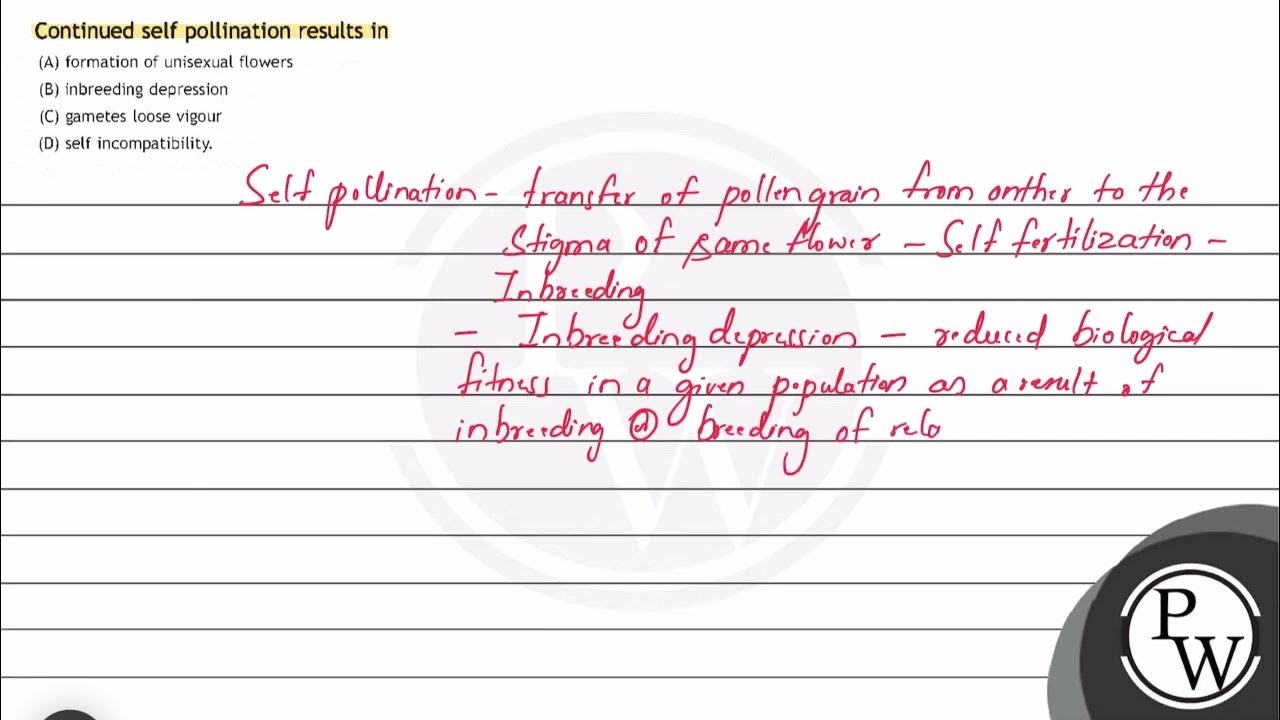 Continued self pollination results in
(A) formation of unisexual flowers
(B) inbreeding depression
(C) gametes loose vigour
(D) self incompatibility.
Self pollination - transfer of pollen grain from onther to the
Stigma of same flower - Self fertilization -
Inbreeding
- Inbreeding depression - reduced biological
fitness in a given population as a result of
inbreeding breeding of rela
PW
PW